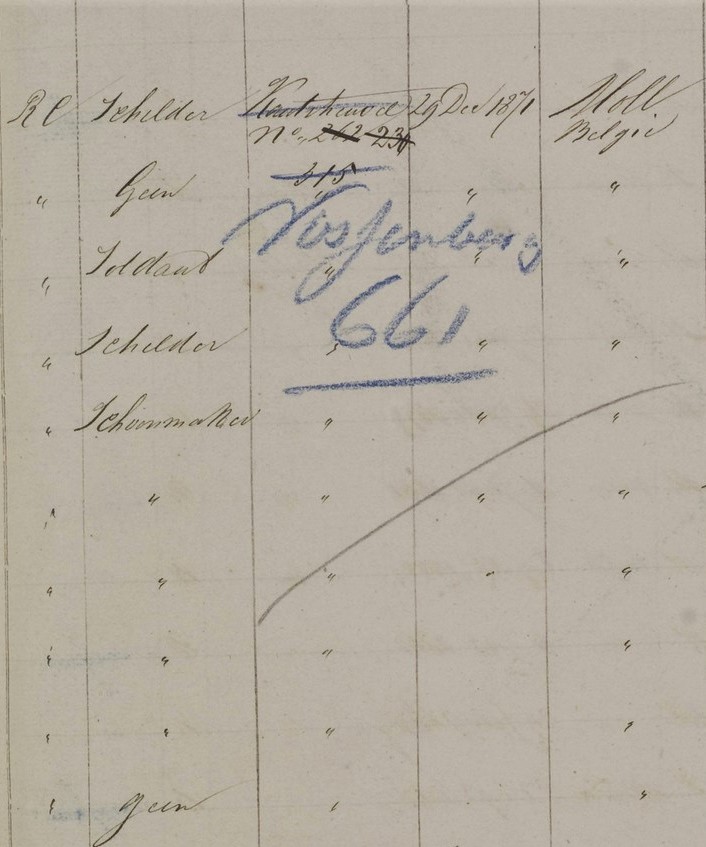 R C Schilder 29 Dec 1871 Moll
No. 262 236 Belgie
315
" Geen " " "
Vossenberg
" Soldaat " " "
661
" Schilder " " "
" Schoenmaker " " "
" " " " "
" " " " "
" " " "
" " " "
" Geen " "